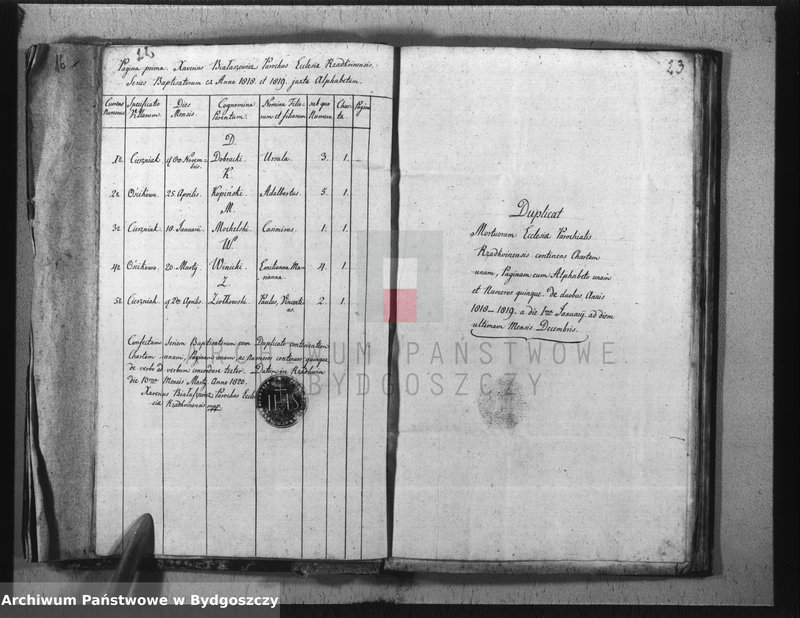 22
Pagina prima Xaverius Białaszewicz Parochus Ecclesiæ Rzadkwinensis.
Series Baptisatorum ex Anno 1818. et 1819. juxta Alphabetum.
Currens Numerus. Specificatio Villarum. Dies Mensis. Cognomina Parentum. Nomina Filiorum et filiarum sub quo Numero. Charta. Pagina
D.
1. Cierzniak. Dobracki. Ursula. 3. 1.
K.
2. 25. Aprilis. Kopiński. Adalbertus. 5. 1.
M.
3. Cierzniak. 18 Januarii. Casimirus. 1. 1.
W.
4. 20. Martij. Winicki. Emilianna Marianna. 4. 1.
Z.
5. Cierzniak. Aprilis. Ziołkowski. Paulus, Vincentius. 2. 1
Confectam Seriem Baptisatorum cum Duplicato continentem
Chartam unam, Paginam unam, ac Numeros continens quinque
de verbo ad verbum concordare testor. Datum in Rzadkwin
die 10ma Mensis Martij Anno 1820.
Xaverius Białaszewicz Parochus Ecclesiæ Rzadkwinensis mpp.
IHS
23
Duplicat
Mortuorum Ecclesiæ Parochialis
Rzadkwinensis continens Chartam
unam, Paginam cum Alphabeto unam
et Numeros quinque. de duobus Annis
1818–1819. a die 1ma Januarij ad diem
ultimam Mensis Decembris.
ARCHIWUM PAŃSTWOWE
W BYDGOSZCZY
Archiwum Państwowe w Bydgoszczy